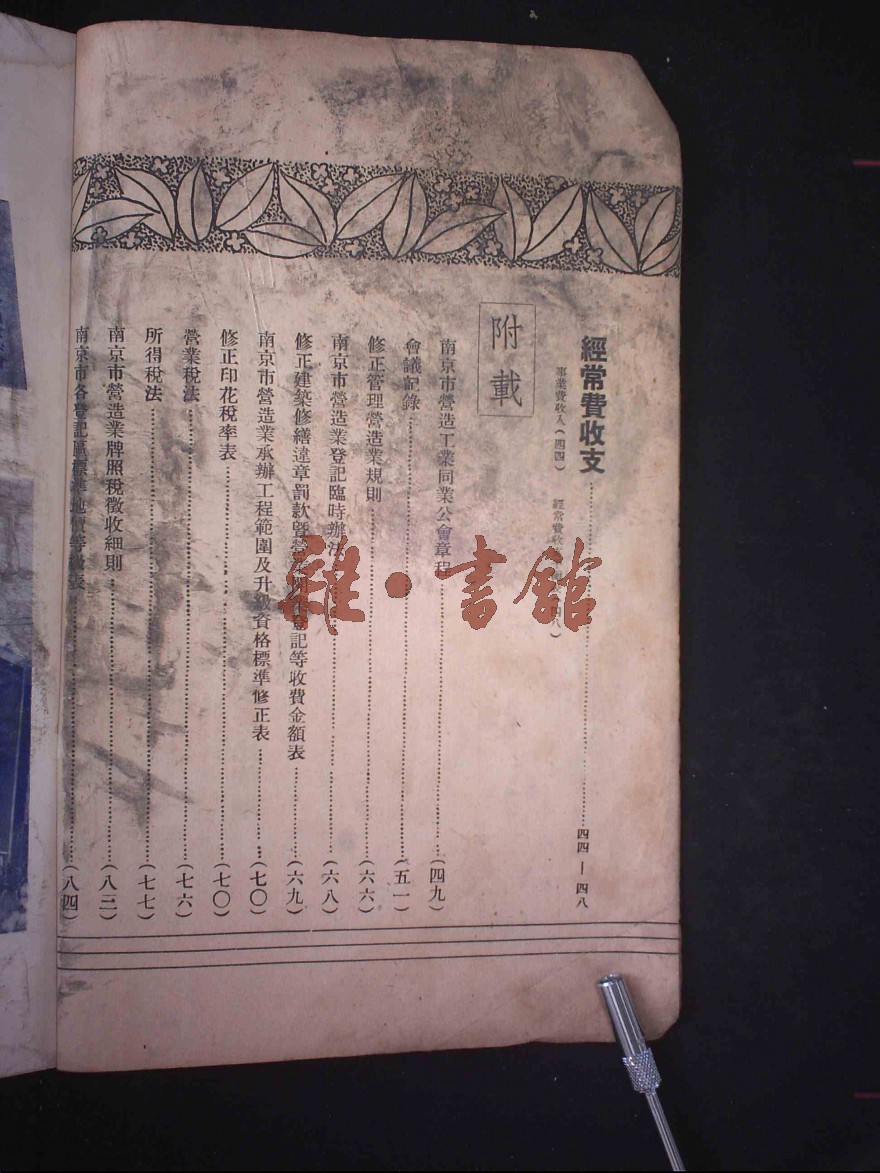 經常費收支……四四—四八
事業費收入(四四) 經常費收 四八)
附載
南京市營造工業同業公會章程……(四九)
會議記錄……(五一)
修正管理營造業規則……(六六)
南京市營造業登記臨時辦法……(六八)
修正建築修繕違章罰款暨營 登記等收費金額表……(六九)
南京市營造業承辦工程範圍及升級資格標準修正表……(七〇)
修正印花稅率表……(七〇)
營業稅法……(七六)
所得稅法……(七七)
南京市營造業牌照稅徵收細則……(八三)
南京市各登記區標準地價等級表……(八四)
雜·書館